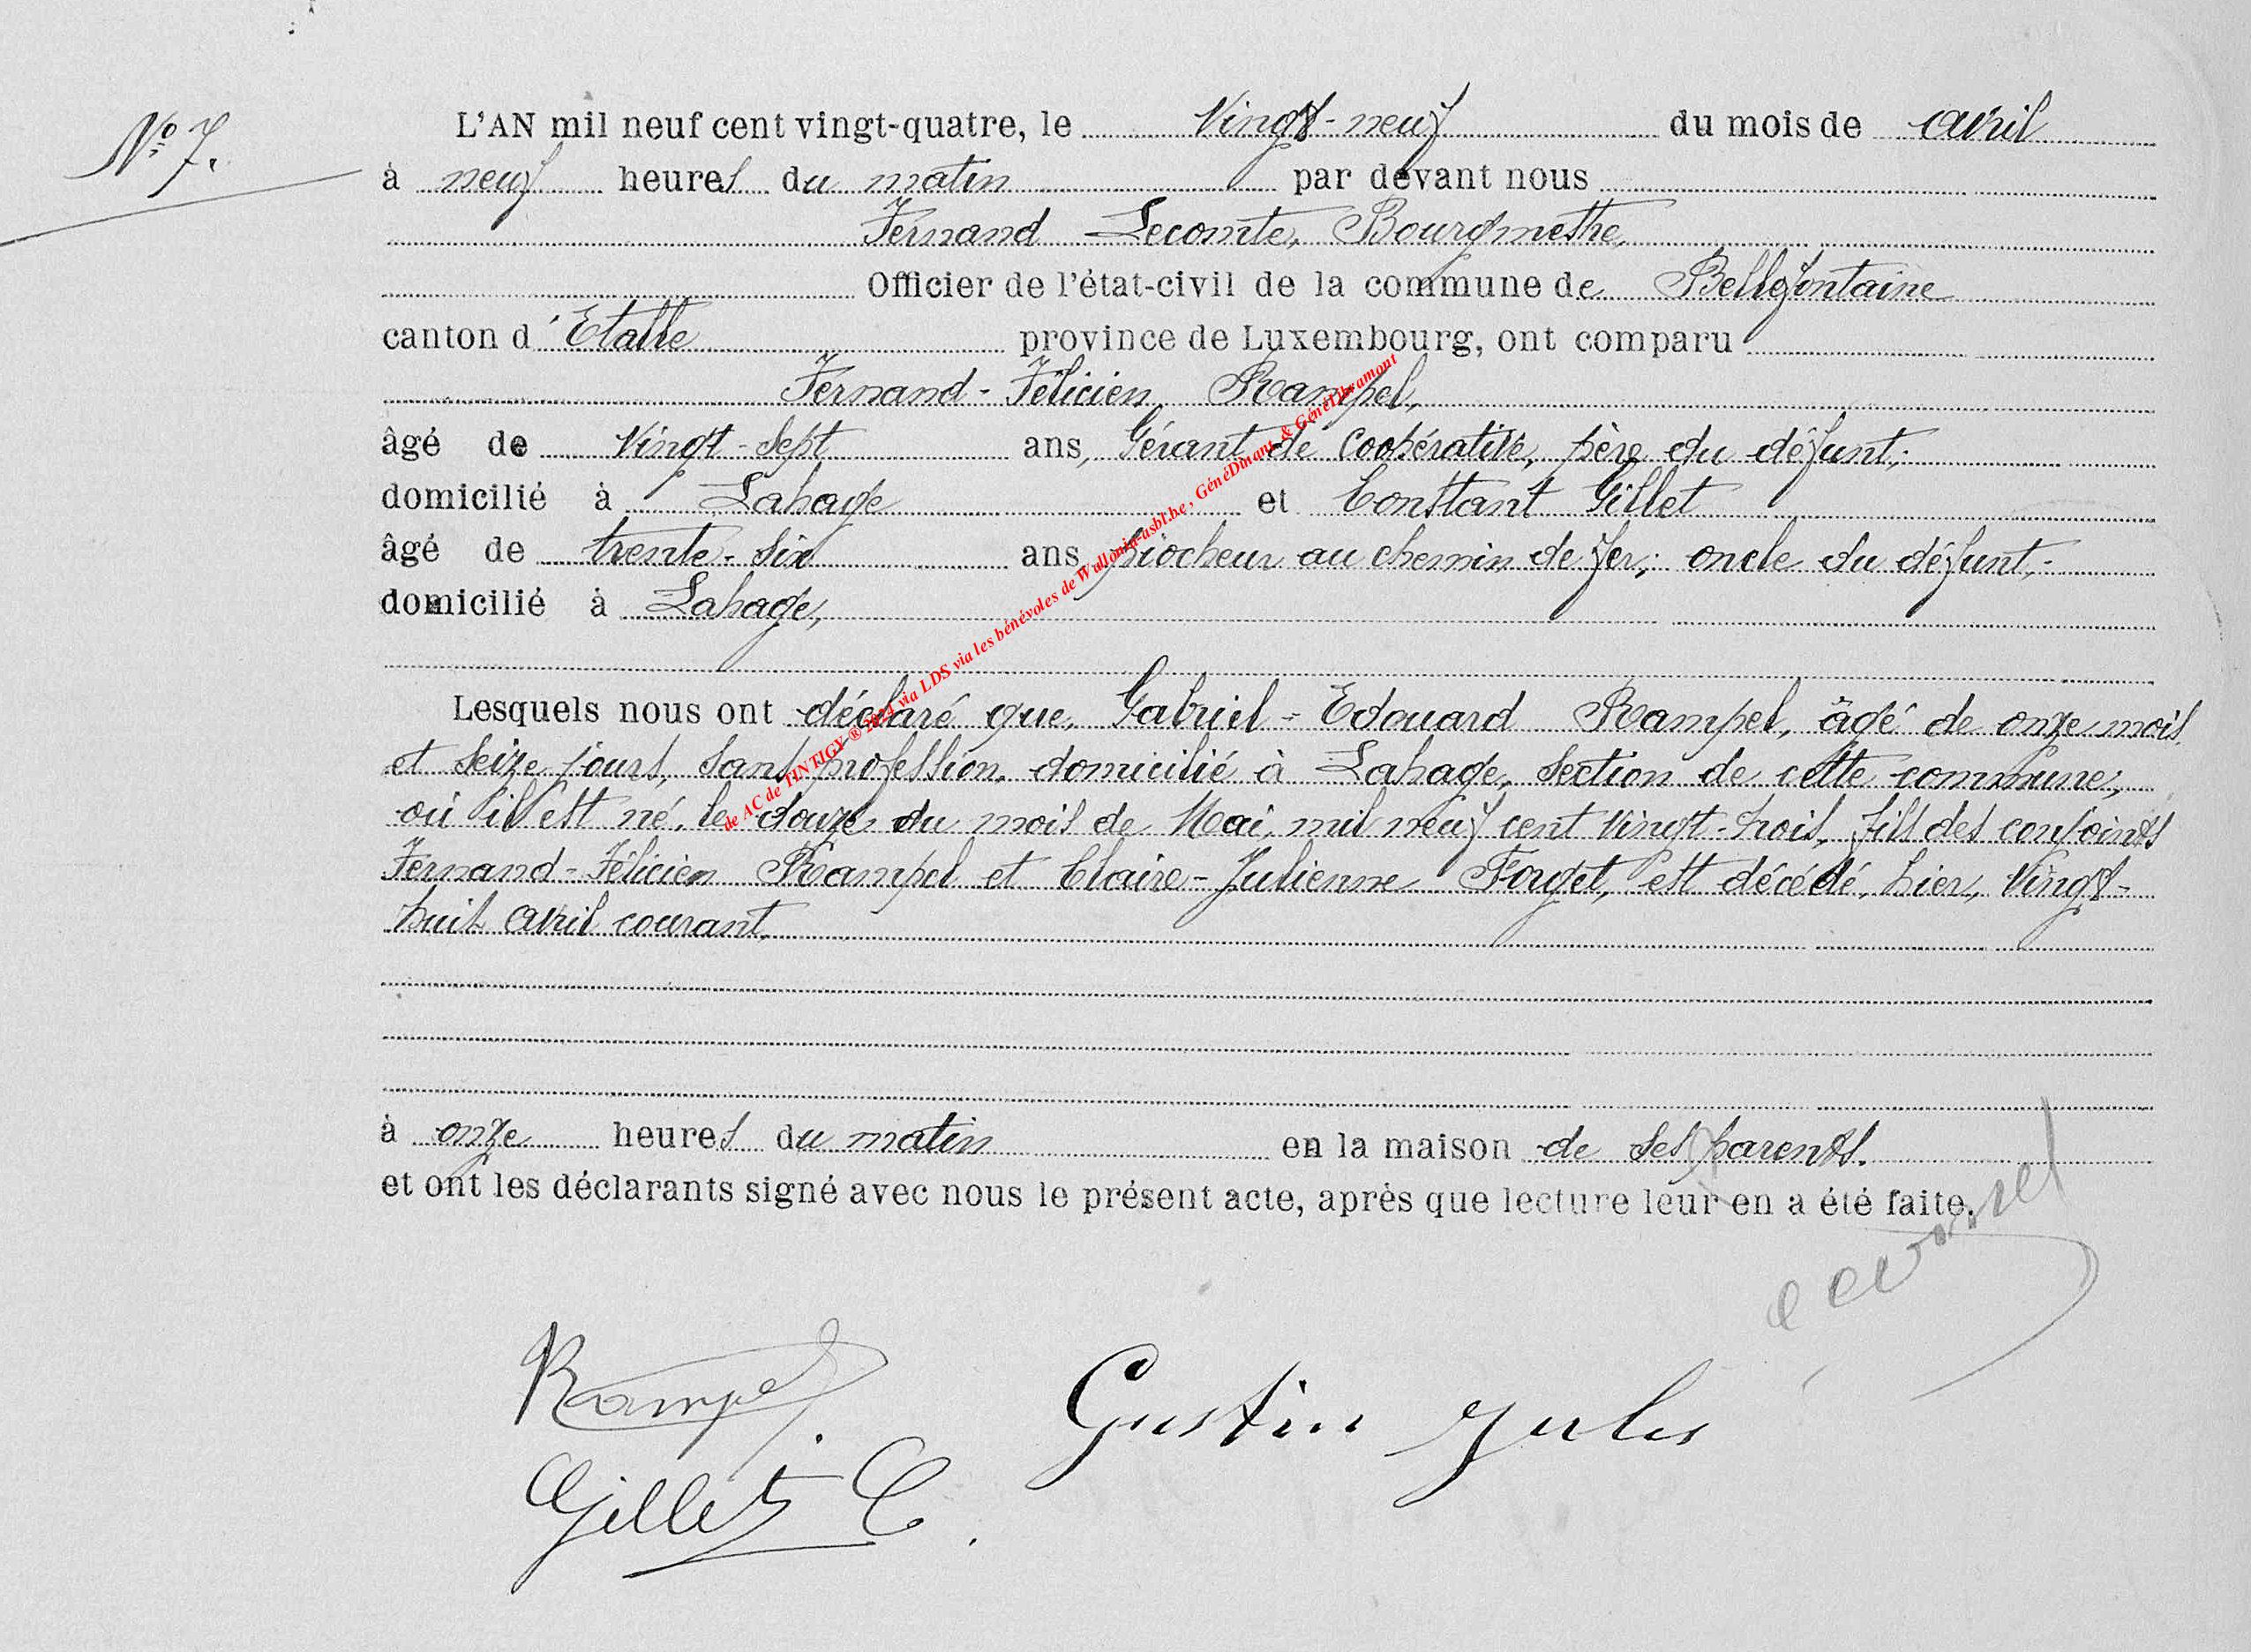 N° 7.
L'AN mil neuf cent vingt-quatre, le Vingt-neuf du mois de avril
à neuf heures du matin par devant nous
Fernand Lecomte, Bourgmestre,
Officier de l'état-civil de la commune de Bellefontaine
canton d'Etalle province de Luxembourg, ont comparu
Fernand-Félicien Rampel,
âgé de Vingt-Sept ans, Gérant de Coopérative, père du défunt,
domicilié à Lahage et Constant Gillet
âgé de trente-Six ans, piocheur au chemin de fer, oncle du défunt,
domicilié à Lahage,
Lesquels nous ont déclaré que, Gabriel-Edouard Rampel, âgé de onze mois
et Seize jours, Sans profession, domicilié à Lahage, Section de cette commune,
où il est né, le douze du mois de Mai, mil neuf cent Vingt-trois, fils des conjoints
Fernand-Félicien Rampel et Claire-Julienne Forget, est décédé, hier, Vingt-
huit avril courant,
à onze heures du matin en la maison de Ses parents.
et ont les déclarants signé avec nous le présent acte, après que lecture leur en a été faite.
Rampel
Gillet C.
Gustin Jules
de AC de TINTIGY ® 2024 via LDS via les bénévoles de Wallonia-asbl.be, GénéDinant & GénéLibramont